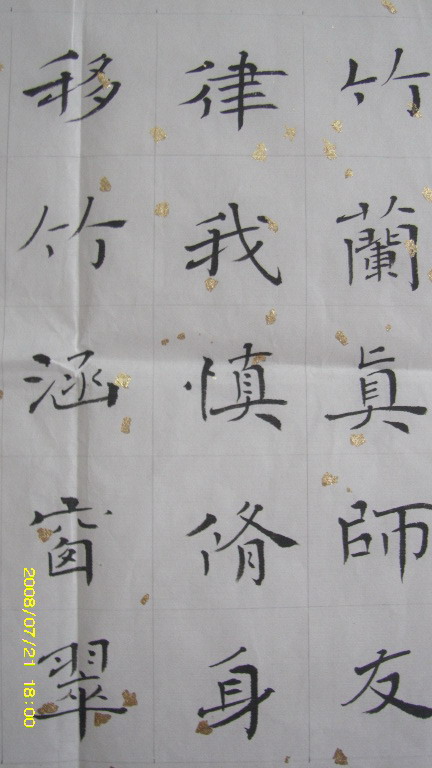 竹蘭眞師友
律我慎脩身
移竹涵窗翠
2008/07/21 18:00